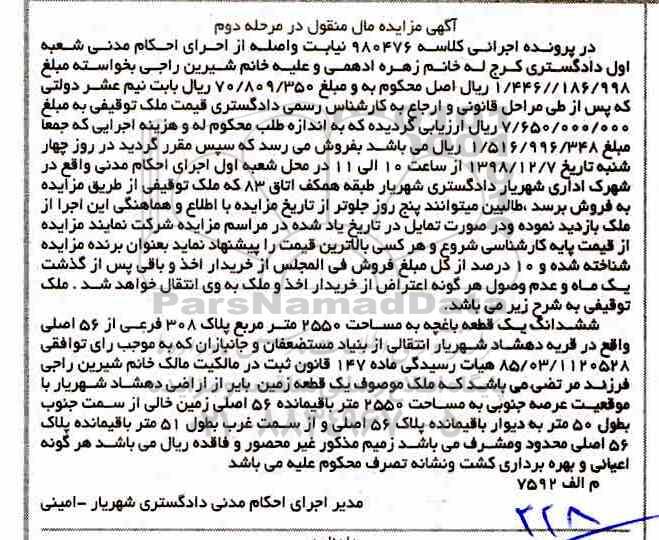 آگهی مزایده مال منقول در مرحله دوم
در پرونده اجرائی کلاسه ۹۸۰۴۷۶ نیابت واصله از اجرای احکام مدنی شعبه
اول دادگستری کرج له خانم زهره ادهمی و علیه خانم شیرین راجی بخواسته مبلغ
۱/۴۴۶//۱۸۶/۹۹۸ ریال اصل محکوم به و مبلغ ۷۰/۸۰۹/۳۵۰ ریال بابت نیم عشر دولتی
که پس از طی مراحل قانونی و ارجاع به کارشناس رسمی دادگستری قیمت ملک توقیفی به مبلغ
۷/۶۵۰/۰۰۰/۰۰۰ ریال ارزیابی گردیده که به اندازه طلب محکوم له و هزینه اجرایی که جمعا
مبلغ ۱/۵۱۶/۹۹۶/۳۴۸ ریال می باشد بفروش می رسد که سپس مقرر گردید در روز چهار
شنبه تاریخ ۱۳۹۸/۱۲/۷ از ساعت ۱۰ الی ۱۱ در محل شعبه اول اجرای احکام مدنی واقع در
شهرک اداری شهریار دادگستری شهریار طبقه همکف اتاق ۸۳ که ملک توقیفی از طریق مزایده
به فروش برسد ،طالبین میتوانند پنج روز جلوتر از تاریخ مزایده با اطلاع و هماهنگی این اجرا از
ملک بازدید نموده ودر صورت تمایل در تاریخ یاد شده در مراسم مزایده شرکت نمایند مزایده
از قیمت پایه کارشناسی شروع و هر کسی بالاترین قیمت را پیشنهاد نماید بعنوان برنده مزایده
شناخته شده و ۱۰ درصد از کل مبلغ فروش فی المجلس از خریدار اخذ و باقی پس از گذشت
یک ماه و عدم وصول هر گونه اعتراض از خریدار اخذ و ملک به وی انتقال خواهد شد . ملک
توقیفی به شرح زیر می باشد.
ششدانگ یک قطعه باغچه به مساحت ۲۵۵۰ متر مربع پلاک ۳۰۸ فرعی از ۵۶ اصلی
واقع در قریه دهشاد شهریار انتقالی از بنیاد مستضعفان و جانبازان که به موجب رای توافقی
۸۵/۰۳/۱۱۲۰۵۲۸ هیات رسیدگی ماده ۱۴۷ قانون ثبت در مالکیت مالک خانم شیرین راجی
فرزند مر تضی می باشد که ملک موصوف یک قطعه زمین بایر از اراضی دهشاد شهریار با
موقعیت عرصه جنوبی به مساحت ۲۵۵۰ متر باقیمانده ۵۶ اصلی زمین خالی از سمت جنوب
بطول ۵۰ متر به دیوار باقیمانده پلاک ۵۶ اصلی و از سمت غرب بطول ۵۱ متر باقیمانده پلاک
۵۶ اصلی محدود ومشرف می باشد زمیم مذکور غیر محصور و فاقده ریال می باشد هر گونه
اعیانی و بهره برداری کشت ونشانه تصرف محکوم علیه می باشد
م الف ۷۵۹۲
مدیر اجرای احکام مدنی دادگستری شهریار -امینی
۲۲۸
ParsNamadData